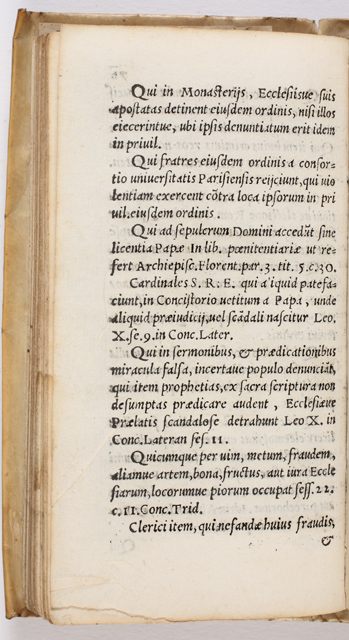 Qui in Monasterijs, Ecclesijsue suis
apostatas detinent eiusdem ordinis, nisi illos
eiecerintue, ubi ipsis denuntiatum erit idem
in priuil.
Qui fratres eiusdem ordinis a consor-
tio uniuersitatis Parisiensis reijciunt, qui uio
lentiam exercent cõtra loca ipsorum in pri
uil. eiusdem ordinis.
Qui ad sepulcrum Domini accedũt sine
licentia Papæ In lib. pœnitentiariæ ut re-
fert Archiepisc. Florent. par. 3. tit. 5. c. 30.
Cardinales S. R. E. qui aliquid patefa-
ciunt, in Concistorio uetitum a Papa, unde
aliquid præiudicij, uel scãdali nascitur Leo.
X. se. 9. in Conc. Later.
Qui in sermonibus, & prædicationibus
miracula falsa, incertaue populo denunciãt,
qui item prophetias, ex sacra scriptura non
desumptas prædicare audent, Ecclesiæue
Prælatis scandalose detrahunt Leo X. in
Conc. Lateran ses. 11.
Quicumque per uim, metum, fraudem,
aliamue artem, bona, fructus, aut iura Eccle
siarum, locorumue piorum occupat sess. 22.
c. 11. Conc. Trid.
Clerici item, qui nefandæ huius fraudis,
&